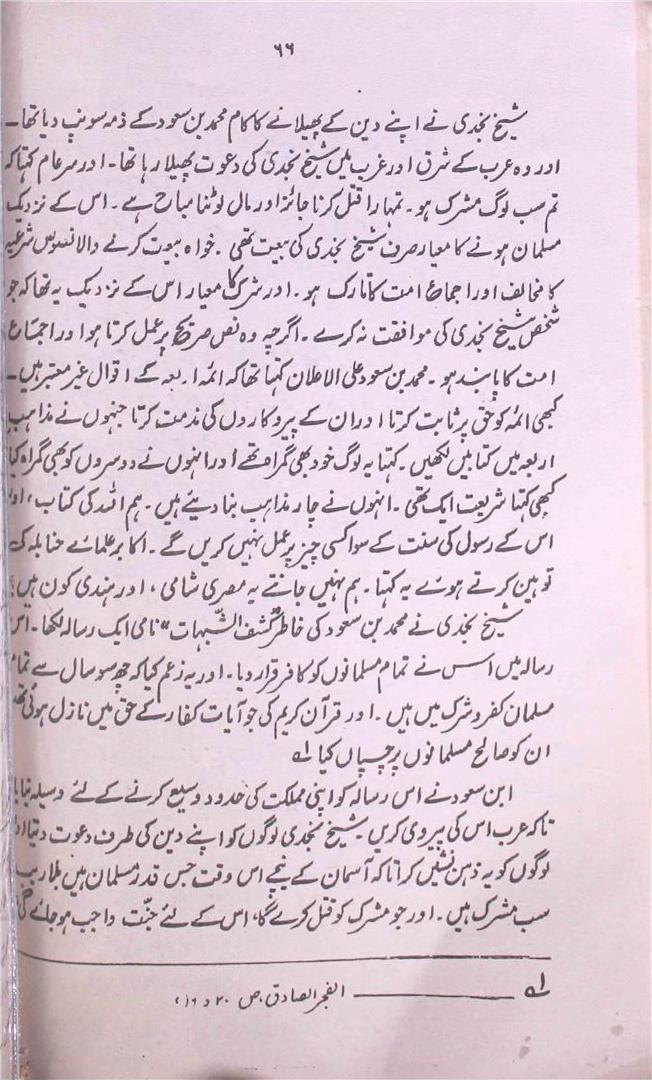 ۶۶
شیخ نجدی نے اپنے دین کے پھیلانے کا کام محمد بن سعود کے ذمہ سونپ دیا تھا۔
اور وہ عرب کے شرق اور غرب میں شیخ نجدی کی دعوت پھیلا رہا تھا۔ اور سرعام کہتا کہ
تم سب لوگ مشرک ہو۔ تمہارا قتل کرنا جائز اور مال لوٹنا مباح ہے۔ اس کے نزدیک
مسلمان ہونے کا معیار صرف شیخ نجدی کی بیعت تھی۔ خواہ بیعت کرنے والا نصوص شرعیہ
کا مخالف اور اجماع امت کا تارک ہو۔ اور شرک کا معیار اس کے نزدیک یہ تھا کہ جو
شخص شیخ نجدی کی موافقت نہ کرے۔ اگرچہ وہ نص صریح پر عمل کرتا ہو اور اجماع
امت کا پابند ہو۔ محمد بن سعود علی الاعلان کہتا تھا کہ ائمہ اربعہ کے اقوال غیر معتبر ہیں۔
کبھی ائمہ کو حق پر ثابت کرتا اور ان کے پیروکاروں کی مذمت کرتا جنہوں نے مذاہب
اربعہ میں کتابیں لکھیں۔ کہتا یہ لوگ خود بھی گمراہ تھے اور انہوں نے دوسروں کو بھی گمراہ کیا
کبھی کہتا شریعت ایک تھی۔ انہوں نے چار مذاہب بنا دیئے ہیں۔ ہم اللہ کی کتاب، اور
اس کے رسول کی سنت کے سوا کسی چیز پر عمل نہیں کریں گے۔ اکابر علمائے حنابلہ کی
توہین کرتے ہوئے یہ کہتا۔ ہم نہیں جانتے یہ مصری شامی، اور ہندی کون ہیں؛
شیخ نجدی نے محمد بن سعود کی خاطر "کشف الشّبہات" نامی ایک رسالہ لکھا۔ اس
رسالہ میں اس نے تمام مسلمانوں کو کافر قرار دیا۔ اور یہ زعم کیا کہ چھ سو سال سے تمام
مسلمان کفر و شرک میں ہیں۔ اور قرآن کریم کی جو آیات کفار کے حق میں نازل ہوئی تھیں
ان کو صالح مسلمانوں پر چسپاں کیا لہ
ابن سعود نے اس رسالہ کو اپنی مملکت کی حدود وسیع کرنے کے لئے وسیلہ بنایا
تاکہ عرب اس کی پیروی کریں۔ شیخ نجدی لوگوں کو اپنے دین کی طرف دعوت دیتا اور
لوگوں کو یہ ذہن نشین کراتا کہ آسمان کے نیچے اس وقت جس قدر مسلمان ہیں بلاریب
سب مشرک ہیں۔ اور جو مشرک کو قتل کرے گا، اس کے لئے جنّت واجب ہو جائے گی
لہ ــــــــــ الفجر الصادق، ص